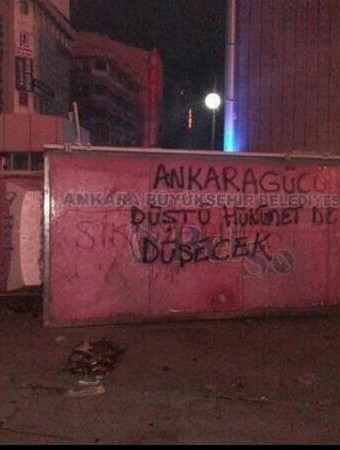 ANKARAGÜCÜ
ANKARA BÜYÜKŞEHİR BELEDİYES
DÜŞTÜ HÜKÜMET DE
DÜŞECEK